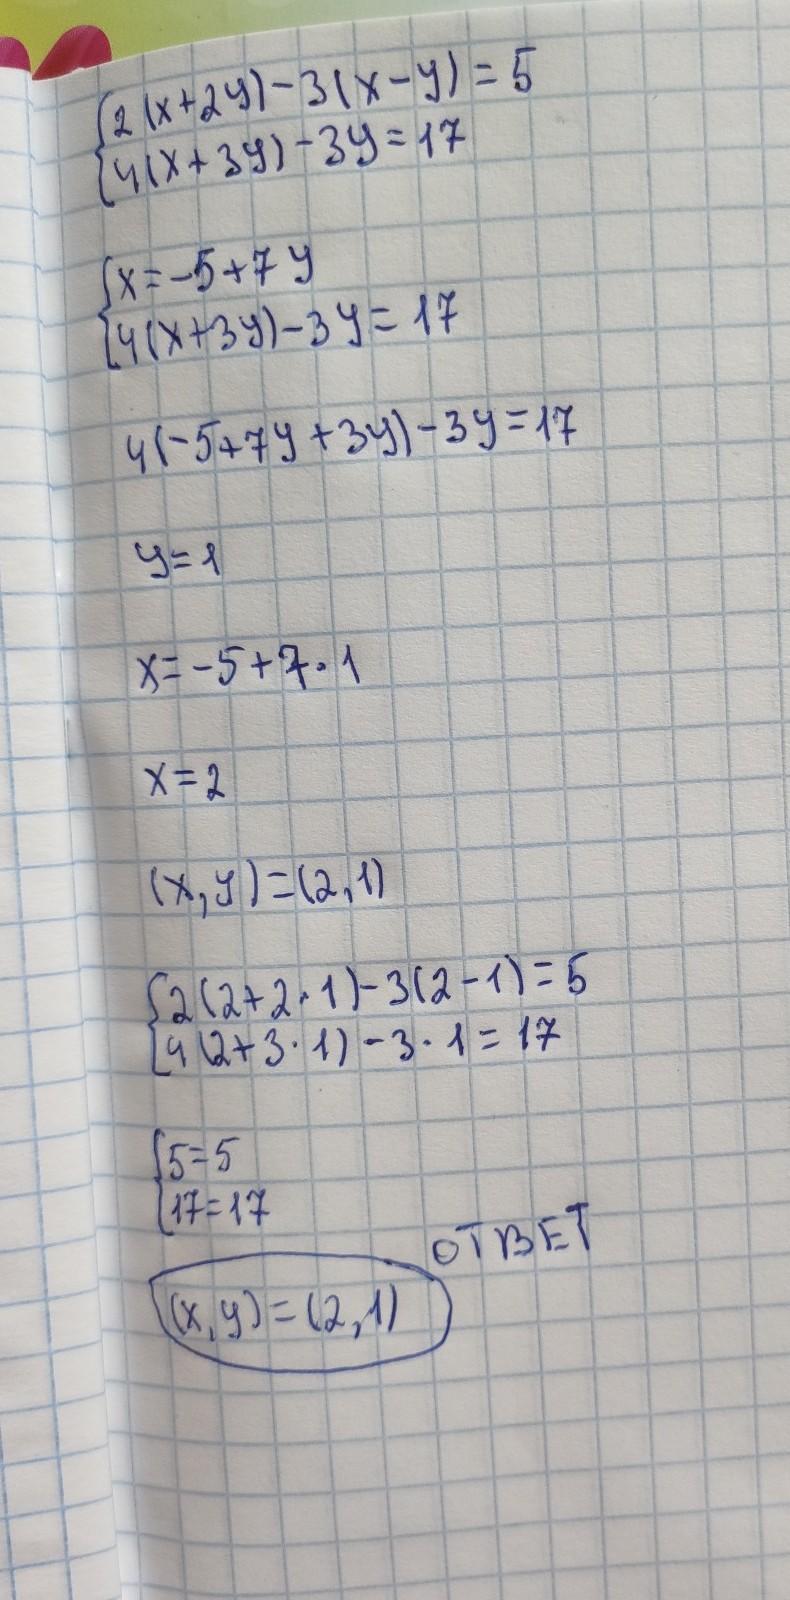 {2(x+2y)-3(x-y)=5
{4(x+3y)-3y=17
{x=-5+7y
{4(x+3y)-3y=17
4(-5+7y+3y)-3y=17
y=1
x=-5+7·1
x=2
(x,y)=(2,1)
{2(2+2·1)-3(2-1)=5
{4(2+3·1)-3·1=17
{5=5
{17=17
ОТВЕТ
(x,y)=(2,1)